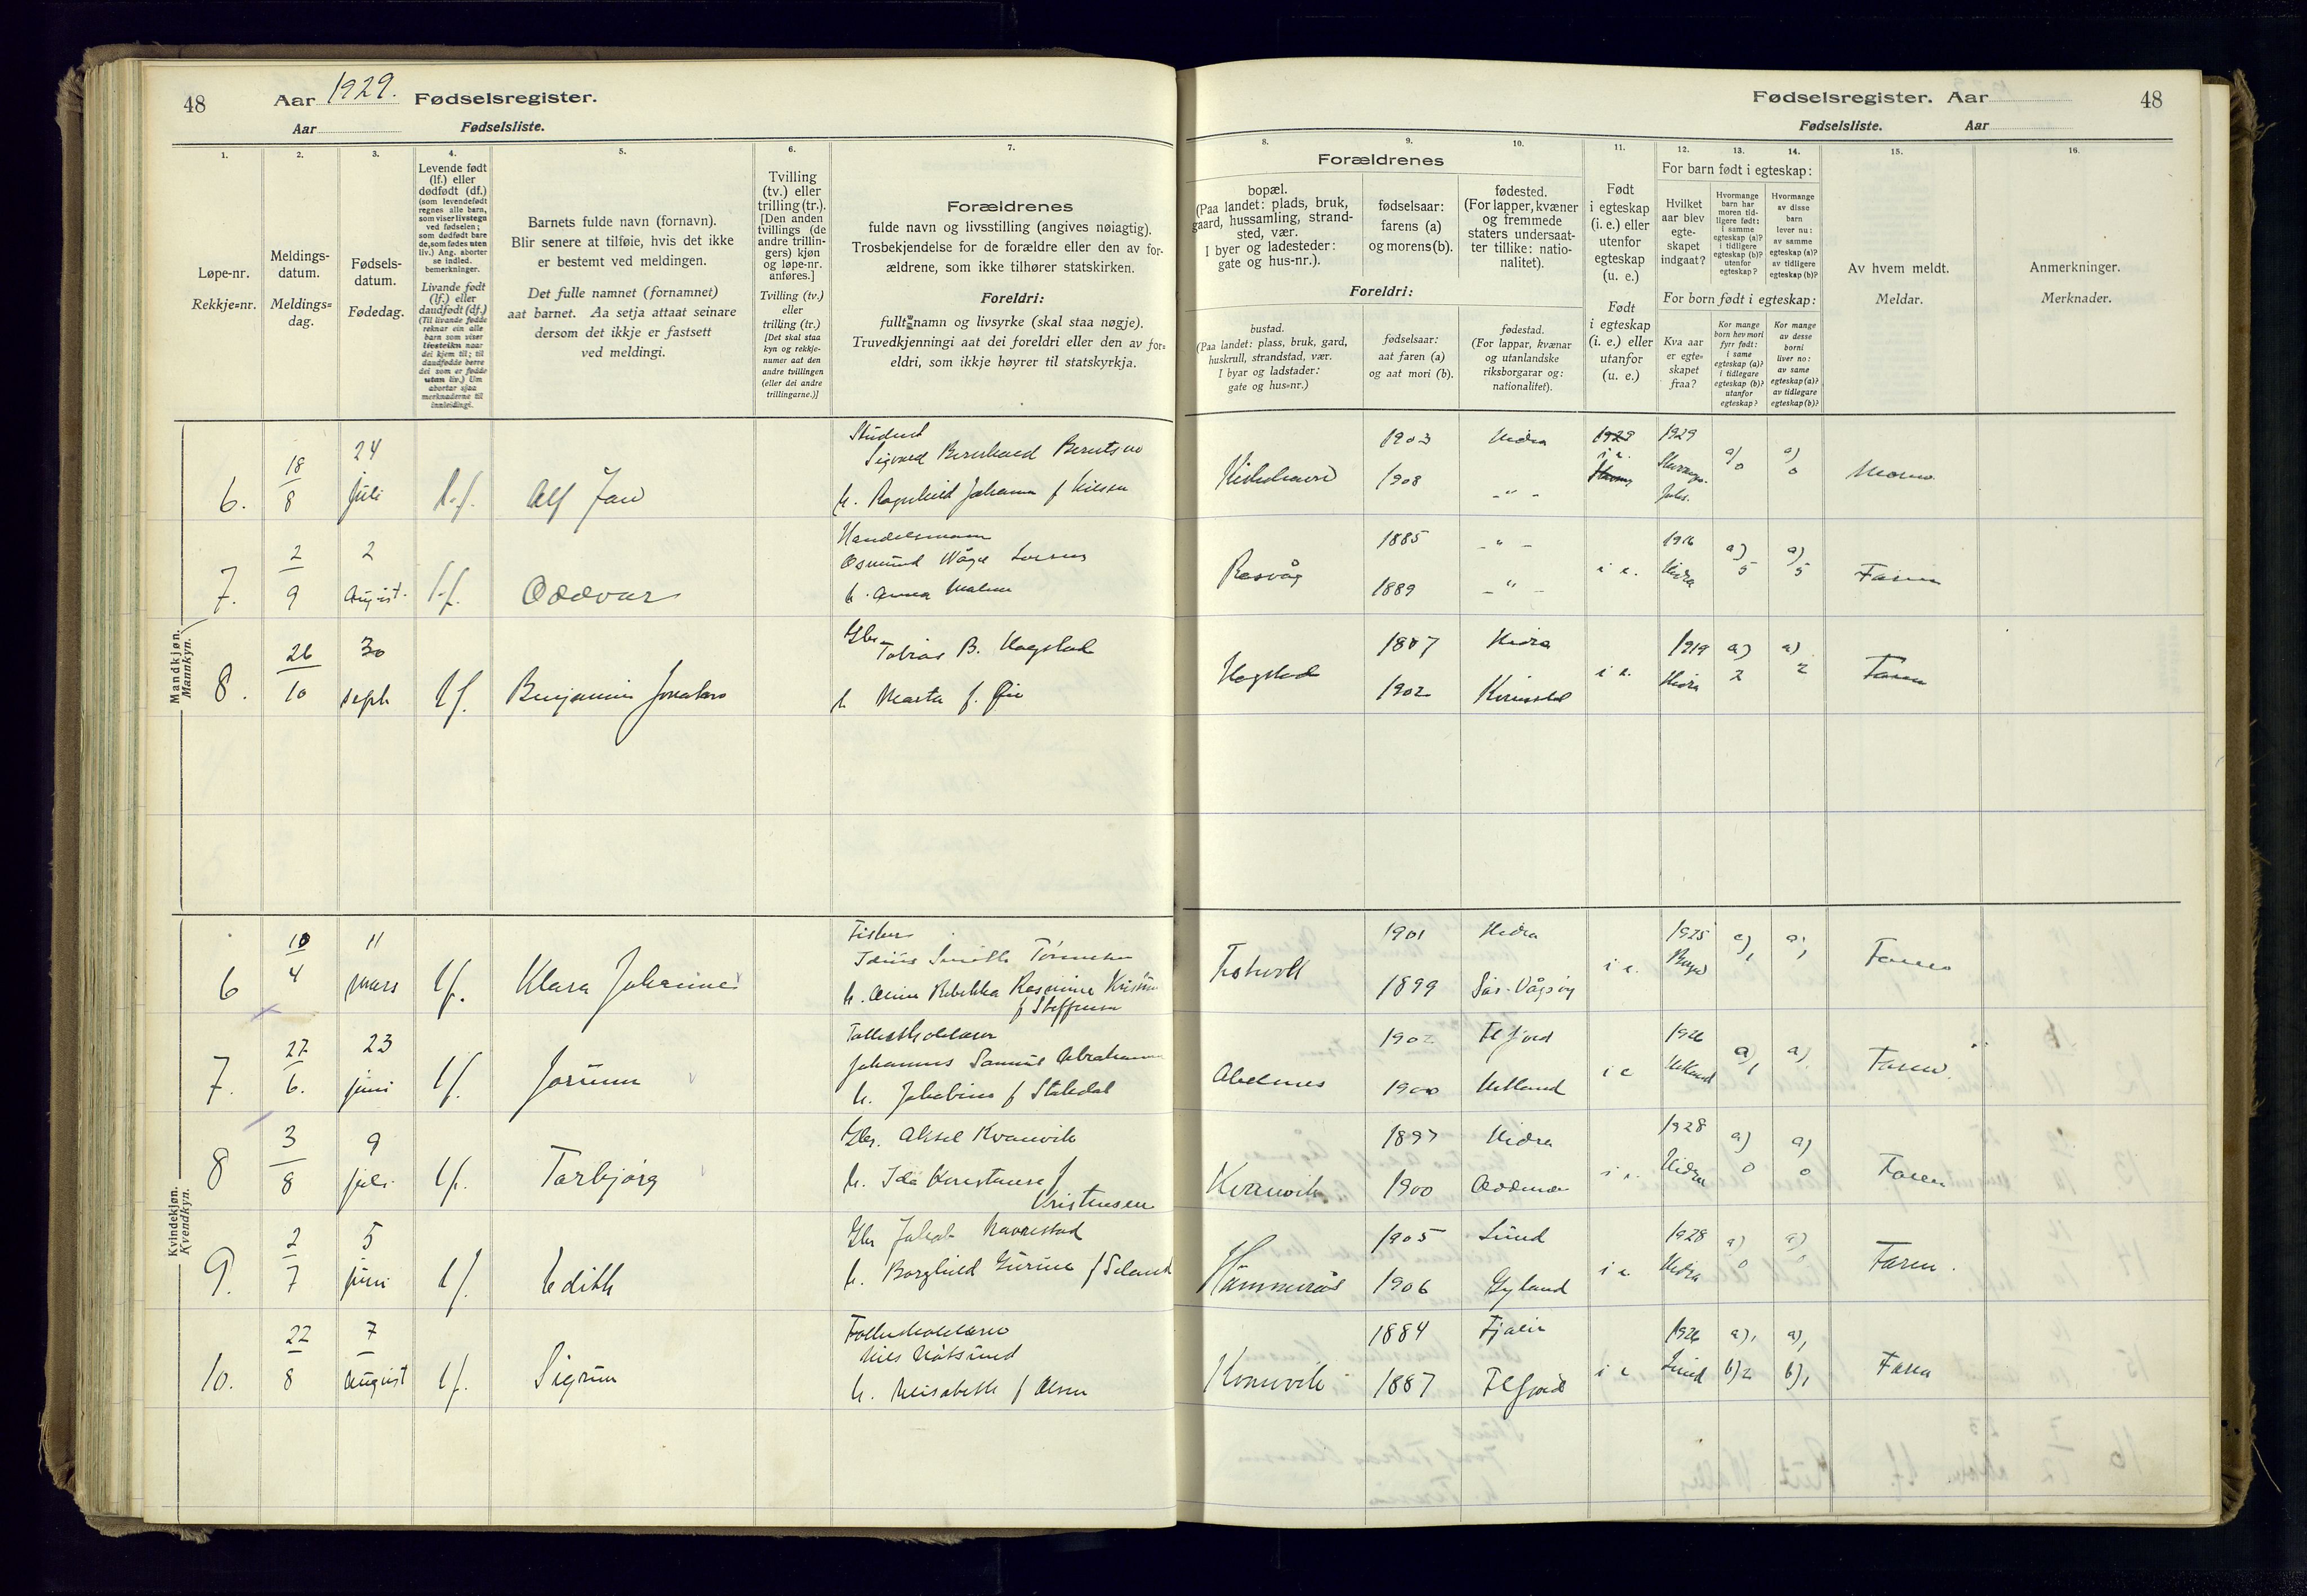 48 Aar 1929. Fødselsregister.
Aar Fødselsliste.
Fødselsregister. Aar 48
Fødselsliste. Aar
1. 2. 3. 4. 5. 6. 7.
8. 9. 10. 11. 12. 13. 14. 15. 16.
Løpe-nr.
Rekkje-nr.
Meldings-
datum.
Meldings-
dag.
Fødsels-
datum.
Fødedag.
Levende født
(lf.) eller
dødfødt (df.)
(som levendefødt
regnes alle barn,
som viser livstegn
ved fødselen;
som dødfødt bare
de, som fødes uten
liv.) Ang. aborter
se indled.
bemerkninger.
Livande født
(lf.) eller
daudfødt (df.)
(Til livande fødde
reknar ein alle
barn som viser
livsteikn naar
dei kjem til; til
daudfødde berre
dei som er fødde
utan liv.) Um
abortar sjaa
merknaderne til
innleidingi.
Barnets fulde navn (fornavn).
Blir senere at tilføie, hvis det ikke
er bestemt ved meldingen.
Det fulle namnet (fornamnet)
aat barnet. Aa setja attaat seinare
dersom det ikkje er fastsett
ved meldingi.
Tvilling
(tv.) eller
trilling (tr.).
[Den anden
tvillings (de
andre trillin-
gers) kjøn
og løpe-nr.
anføres.]
Tvilling (tv.)
eller
trilling (tr.)
[Det skal staa
kyn og rekkje-
numer aat den
andre tvillingen
(eller dei andre
trillingarne.)]
Forældrenes
fulde navn og livsstilling (angives nøiagtig).
Trosbekjendelse for de forældre eller den av for-
ældrene, som ikke tilhører statskirken.
Foreldri:
fullt namn og livsyrke (skal staa nøgje).
Truvedkjenningi aat dei foreldri eller den av for-
eldri, som ikkje høyrer til statskyrkja.
Forældrenes
bopæl.
(Paa landet: plads, bruk,
gaard, hussamling, strand-
sted, vær.
I byer og ladesteder:
gate og hus-nr.).
fødselsaar:
farens (a)
og morens (b).
fødested.
(For lapper, kvæner
og fremmede
staters undersaat-
ter tillike: natio-
nalitet).
Foreldri:
bustad.
(Paa landet: plass, bruk, gard,
huskrull, strandstad, vær.
I byar og ladstader:
gate og hus-nr.)
fødselsaar:
aat faren (a)
og aat mori (b).
fødestad.
(For lappar, kvænar
og utanlandske
riksborgarar og:
nationalitet).
Født
i egteskap
(i. e.) eller
utenfor
egteskap
(u. e.)
Født
i egteskap
(i. e.) eller
utanfor
egteskap
(u. e.)
For barn født i egteskap:
Hvilket
aar blev
egte-
skapet
indgaat?
Hvormange
barn har
moren tid-
ligere født:
i samme
egteskap (a)?
i tidligere
egteskap (b)?
utenfor
egteskap?
Hvormange
av disse
barn
lever nu:
av samme
egteskap (a)?
av tidligere
egteskap (b)?
For born født i egteskap:
Kva aar
er egte-
skapet
fraa?
Kor mange
born hev mori
fyrr født:
i same
egteskap (a)?
i tidlegare
egteskap (b)?
utanfor
egteskap?
Kor mange
av desse
borni
liver no:
av same
egteskap (a)?
av tidlegare
egteskap (b)?
Av hvem meldt.
Meldar.
Anmerkninger.
Merknader.
Mandkjøn.
Mannkyn.
6. 18/8 24 juli l.f. Alf Jan
Student
Sigvard Bernhard Berntsen
h. Ragnhild Johanne f Nilsen
Kirkehavn 1903 1908 Hidra – " – i e. 1929 a) 0 a) 0 Moren
7. 2/9 2 August l.f. Oddvar
Handelsmann
Osmund Våge
h. Anna
Rasvåg 1885 1889 – " – – " – i e. 1916 Hidra a) 5 a) 5 Faren
8. 26/10 30 sept lf. Benjamin
Gbr. Tobias B. Hagstad
h Marta f. Øie
Hagstad 1887 1902 Hidra i e. 1919 Hidra a) 2 a) 2 Faren
Kvindekjøn.
Kvendkyn.
6 10/4 11 mars lf. Klara Johanne
Fisker
Smith Tønnesen
h. Rebekka Rasmine
f Steffensen
1901 1899 Hidra Sør-Vågsøy i e. 1925 a) 1 a) 1 Faren
7. 27/6. 23 juni lf. Jorunn
Johannes Samuel
h. Jakobine f Stakdal
Abelnes 1902 1900 Fl fjord Hetland i e 1926 a) 1 a) 1 Faren
8 3/8 9 juli lf. Torbjørg
Gbr. Aksel Kvanvik
h. Ida Konstanse f
Kristensen
Kvanvik 1897 1900 Hidra i e. 1928 Hidra a) 0 a) 0 Faren
9. 2/7 5 juni lf Edith
Gbr Jakob Navrestad
h. Borghild Gurine f Seland
Hammerås 1905 1906 Lund Gyland i e. 1928 Hidra a) 0 a) 0 Faren.
10. 22/8 7 August lf. Sigrun
Nils
h. Elisabeth f Olsen
Kvanvik 1884 1887 Fl fjord i e 1926 Lund a) 1 b) 2 a) 1 b) 1 Faren